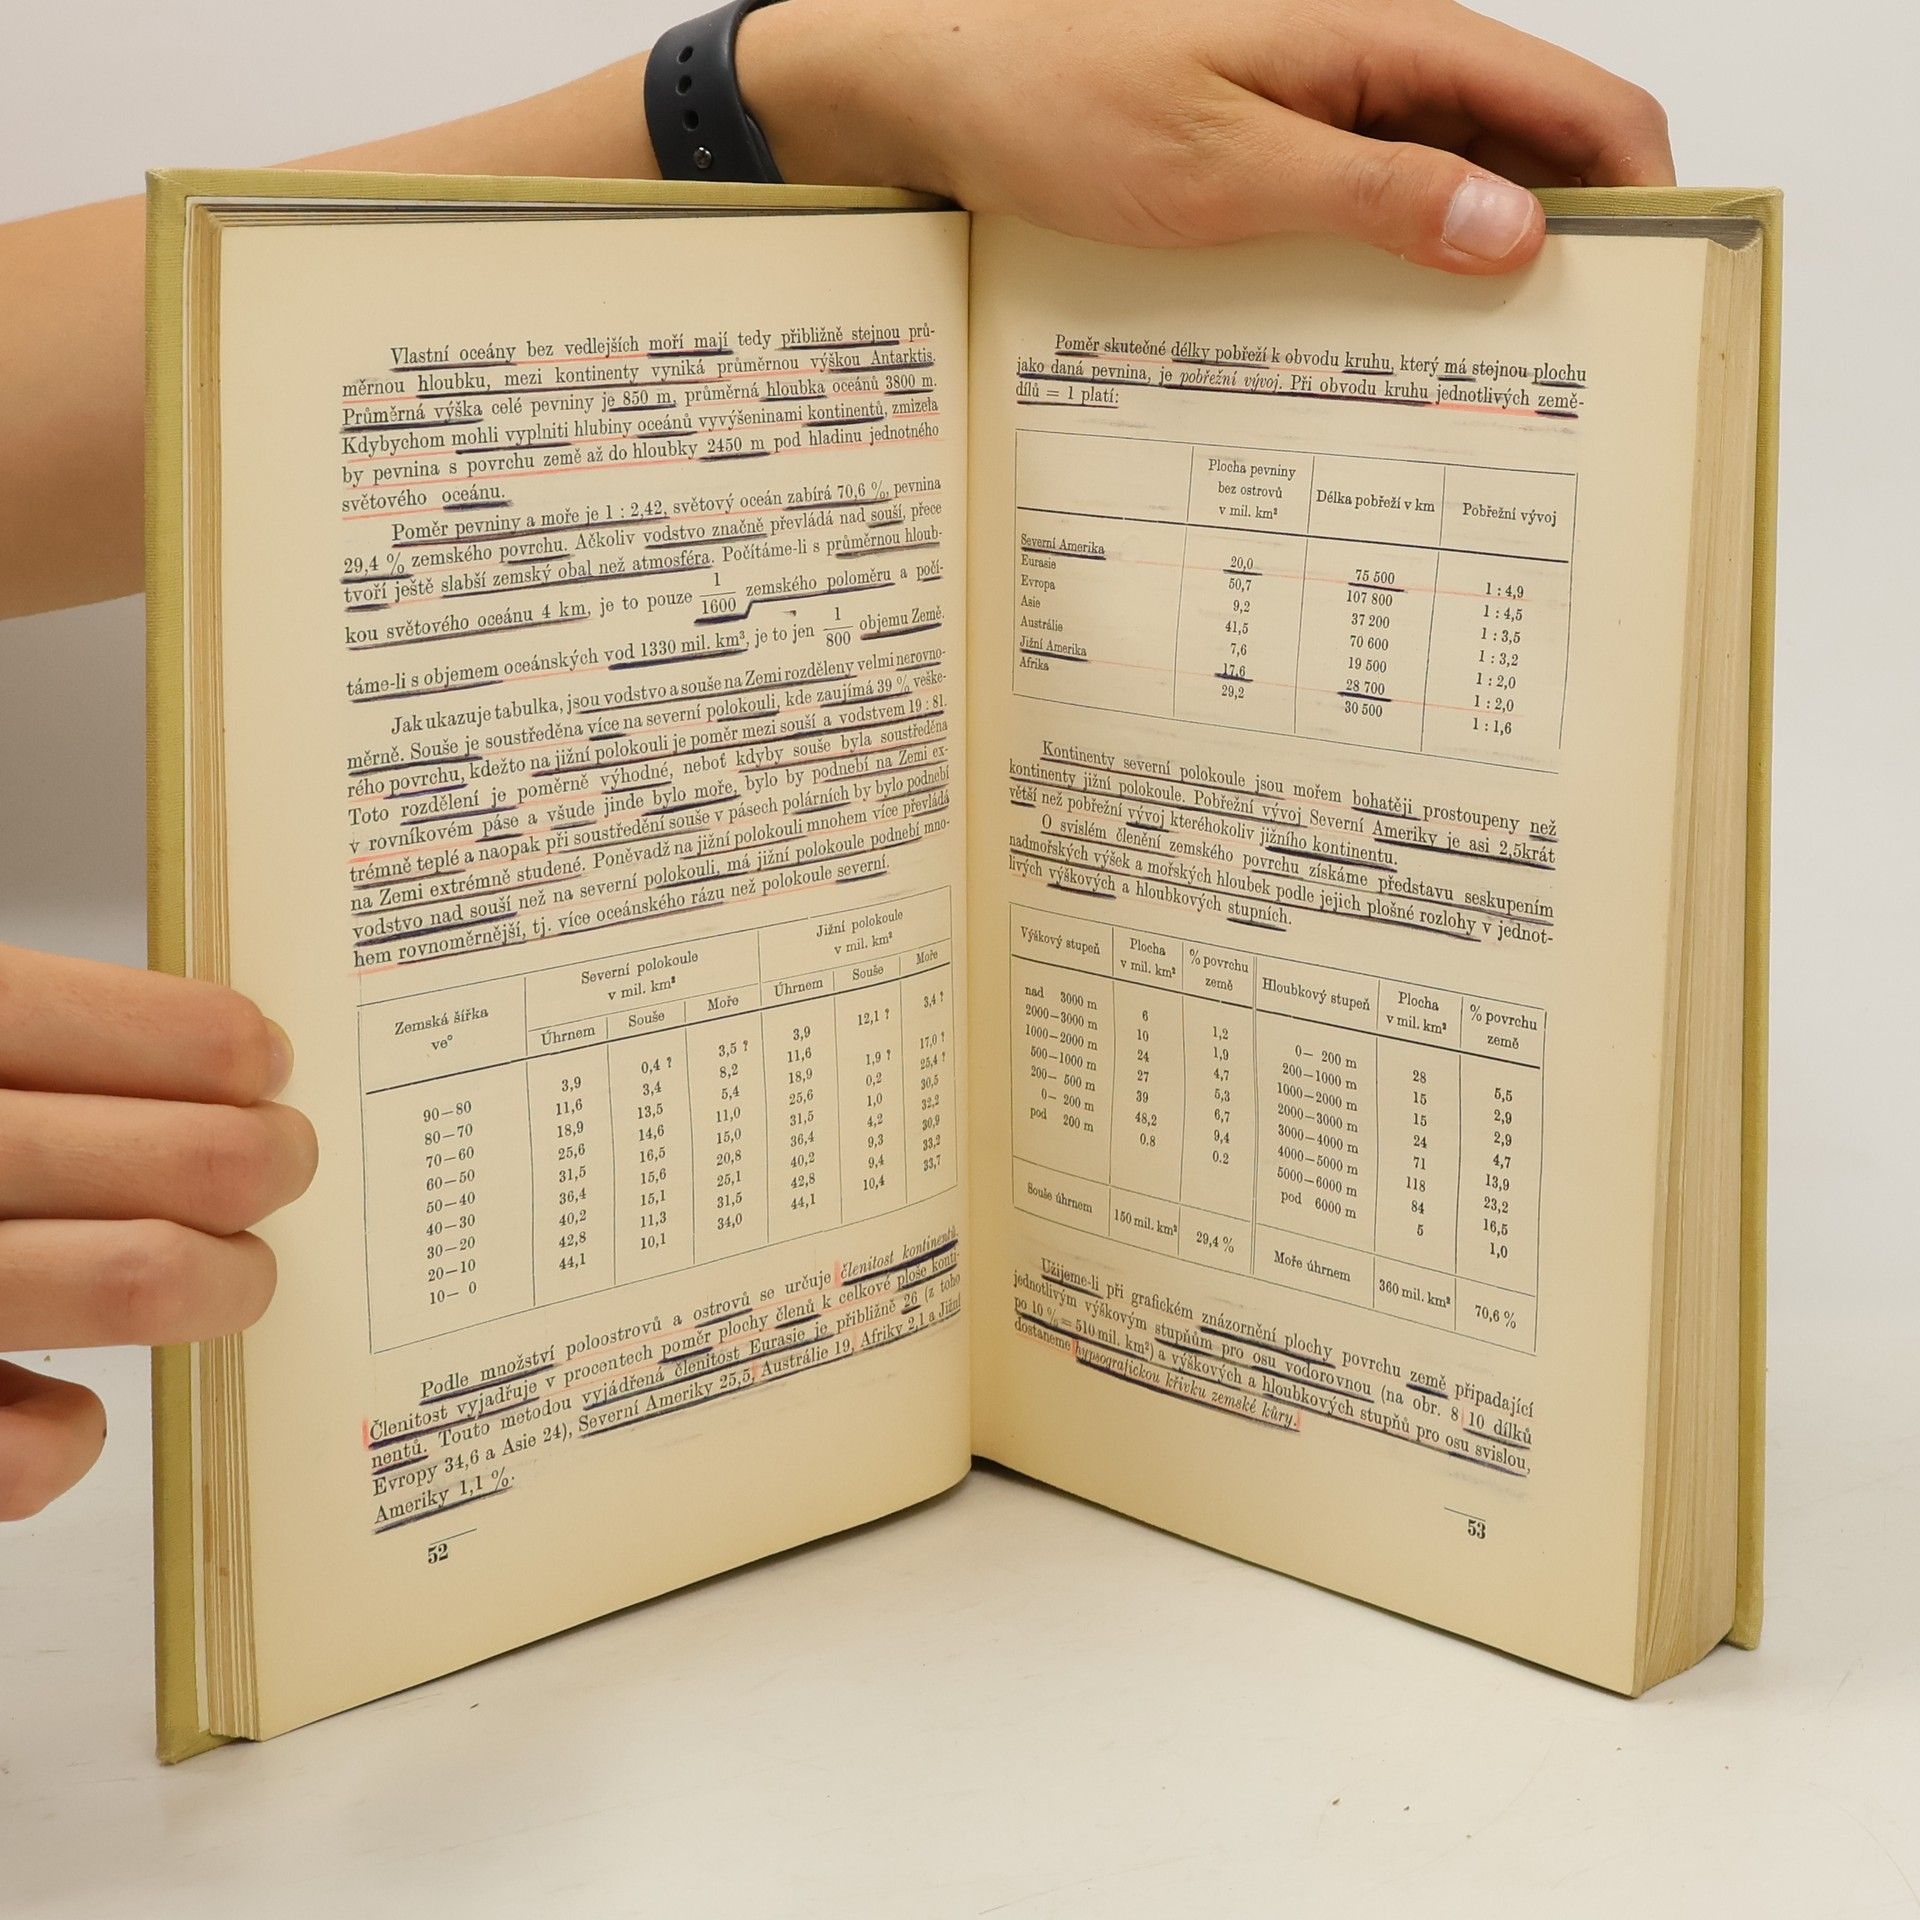 Vlastní oceány bez vedlejších moří mají tedy přibližně stejnou prů-
měrnou hloubku, mezi kontinenty vyniká průměrnou výškou Antarktis.
Průměrná výška celé pevniny je 850 m, průměrná hloubka oceánů 3800 m.
Kdybychom mohli vyplniti hlubiny oceánů vyvýšeninami kontinentů, zmizela
by pevnina s povrchu země až do hloubky 2450 m pod hladinu jednotného
světového oceánu.
Poměr pevniny a moře je 1 : 2,42, světový oceán zabírá 70,6 %, pevnina
29,4 % zemského povrchu. Ačkoliv vodstvo značně převládá nad souší, přece
tvoří ještě slabší zemský obal než atmosféra. Počítáme-li s průměrnou hloub-
kou světového oceánu 4 km, je to pouze 1/1600 zemského poloměru a počí-
táme-li s objemem oceánských vod 1330 mil. km³, je to jen 1/800 objemu Země.
Jak ukazuje tabulka, jsou vodstvo a souše na Zemi rozděleny velmi nerovno-
měrně. Souše je soustředěna více na severní polokouli, kde zaujímá 39 % veške-
rého povrchu, kdežto na jižní polokouli je poměr mezi souší a vodstvem 19 : 81.
Toto rozdělení je poměrně výhodné, neboť kdyby souše byla soustředěna
v rovníkovém páse a všude jinde bylo moře, bylo by podnebí na Zemi ex-
trémně teplé a naopak při soustředění souše v pásech polárních by bylo podnebí
na Zemi extrémně studené. Poněvadž na jižní polokouli mnohem více převládá
vodstvo nad souší než na severní polokouli, má jižní polokoule podnebí mno-
hem rovnoměrnější, tj. více oceánského rázu než polokoule severní.
Zemská šířka ve° | Severní polokoule v mil. km² | Jižní polokoule v mil. km²
Úhrnem | Souše | Moře | Úhrnem | Souše | Moře
90—80 | 3,9 | 0,4 ? | 3,5 ? | 3,9 | 12,1 ? | 3,4 ?
80—70 | 11,6 | 3,4 | 8,2 | 11,6
70—60 | 18,9 | 13,5 | 5,4 | 18,9 | 1,9 ? | 17,0 ?
60—50 | 25,6 | 14,6 | 11,0 | 25,6 | 0,2 | 25,4 ?
50—40 | 31,5 | 16,5 | 15,0 | 31,5 | 1,0 | 30,5
40—30 | 36,4 | 15,6 | 20,8 | 36,4 | 4,2 | 32,2
30—20 | 40,2 | 15,1 | 25,1 | 40,2 | 9,3 | 30,9
20—10 | 42,8 | 11,3 | 31,5 | 42,8 | 9,4 | 33,2
10— 0 | 44,1 | 10,1 | 34,0 | 44,1 | 10,4 | 33,7
Podle množství poloostrovů a ostrovů se určuje členitost kontinentů.
Členitost vyjadřuje v procentech poměr plochy členů k celkové ploše konti-
nentů. Touto metodou vyjádřená členitost Eurasie je přibližně 26 (z toho
Evropy 34,6 a Asie 24), Severní Ameriky 25,5, Austrálie 19, Afriky 2,1 a Jižní
Ameriky 1,1 %.
52
Poměr skutečné délky pobřeží k obvodu kruhu, který má stejnou plochu
jako daná pevnina, je pobřežní vývoj. Při obvodu kruhu jednotlivých země-
dílů = 1 platí:
Plocha pevniny bez ostrovů v mil. km² | Délka pobřeží v km | Pobřežní vývoj
Severní Amerika | 20,0 | 75 500 | 1 : 4,9
Eurasie | 50,7 | 107 800 | 1 : 4,5
Evropa | 9,2 | 37 200 | 1 : 3,5
Asie | 41,5 | 70 600 | 1 : 3,2
Austrálie | 7,6 | 19 500 | 1 : 2,0
Jižní Amerika | 17,6 | 28 700 | 1 : 2,0
Afrika | 29,2 | 30 500 | 1 : 1,6
Kontinenty severní polokoule jsou mořem bohatěji prostoupeny než
kontinenty jižní polokoule. Pobřežní vývoj Severní Ameriky je asi 2,5krát
větší než pobřežní vývoj kteréhokoliv jižního kontinentu.
O svislém členění zemského povrchu získáme představu seskupením
nadmořských výšek a mořských hloubek podle jejich plošné rozlohy v jednot-
livých výškových a hloubkových stupních.
Výškový stupeň | Plocha v mil. km² | % povrchu země | Hloubkový stupeň | Plocha v mil. km² | % povrchu země
nad 3000 m | 6 | 1,2 | 0— 200 m | 28 | 5,5
2000—3000 m | 10 | 1,9 | 200—1000 m | 15 | 2,9
1000—2000 m | 24 | 4,7 | 1000—2000 m | 15 | 2,9
500—1000 m | 27 | 5,3 | 2000—3000 m | 24 | 4,7
200— 500 m | 39 | 6,7 | 3000—4000 m | 71 | 13,9
0— 200 m | 48,2 | 9,4 | 4000—5000 m | 118 | 23,2
pod 200 m | 0.8 | 0.2 | 5000—6000 m | 84 | 16,5
pod 6000 m | 5 | 1,0
Souše úhrnem | 150 mil. km² | 29,4 % | Moře úhrnem | 360 mil. km² | 70,6 %
Užijeme-li při grafickém znázornění plochy povrchu země připadající
jednotlivým výškovým stupňům pro osu vodorovnou (na obr. 8 10 dílků
po 10 % = 510 mil. km²) a výškových a hloubkových stupňů pro osu svislou,
dostaneme hypsografickou křivku zemské kůry.
53